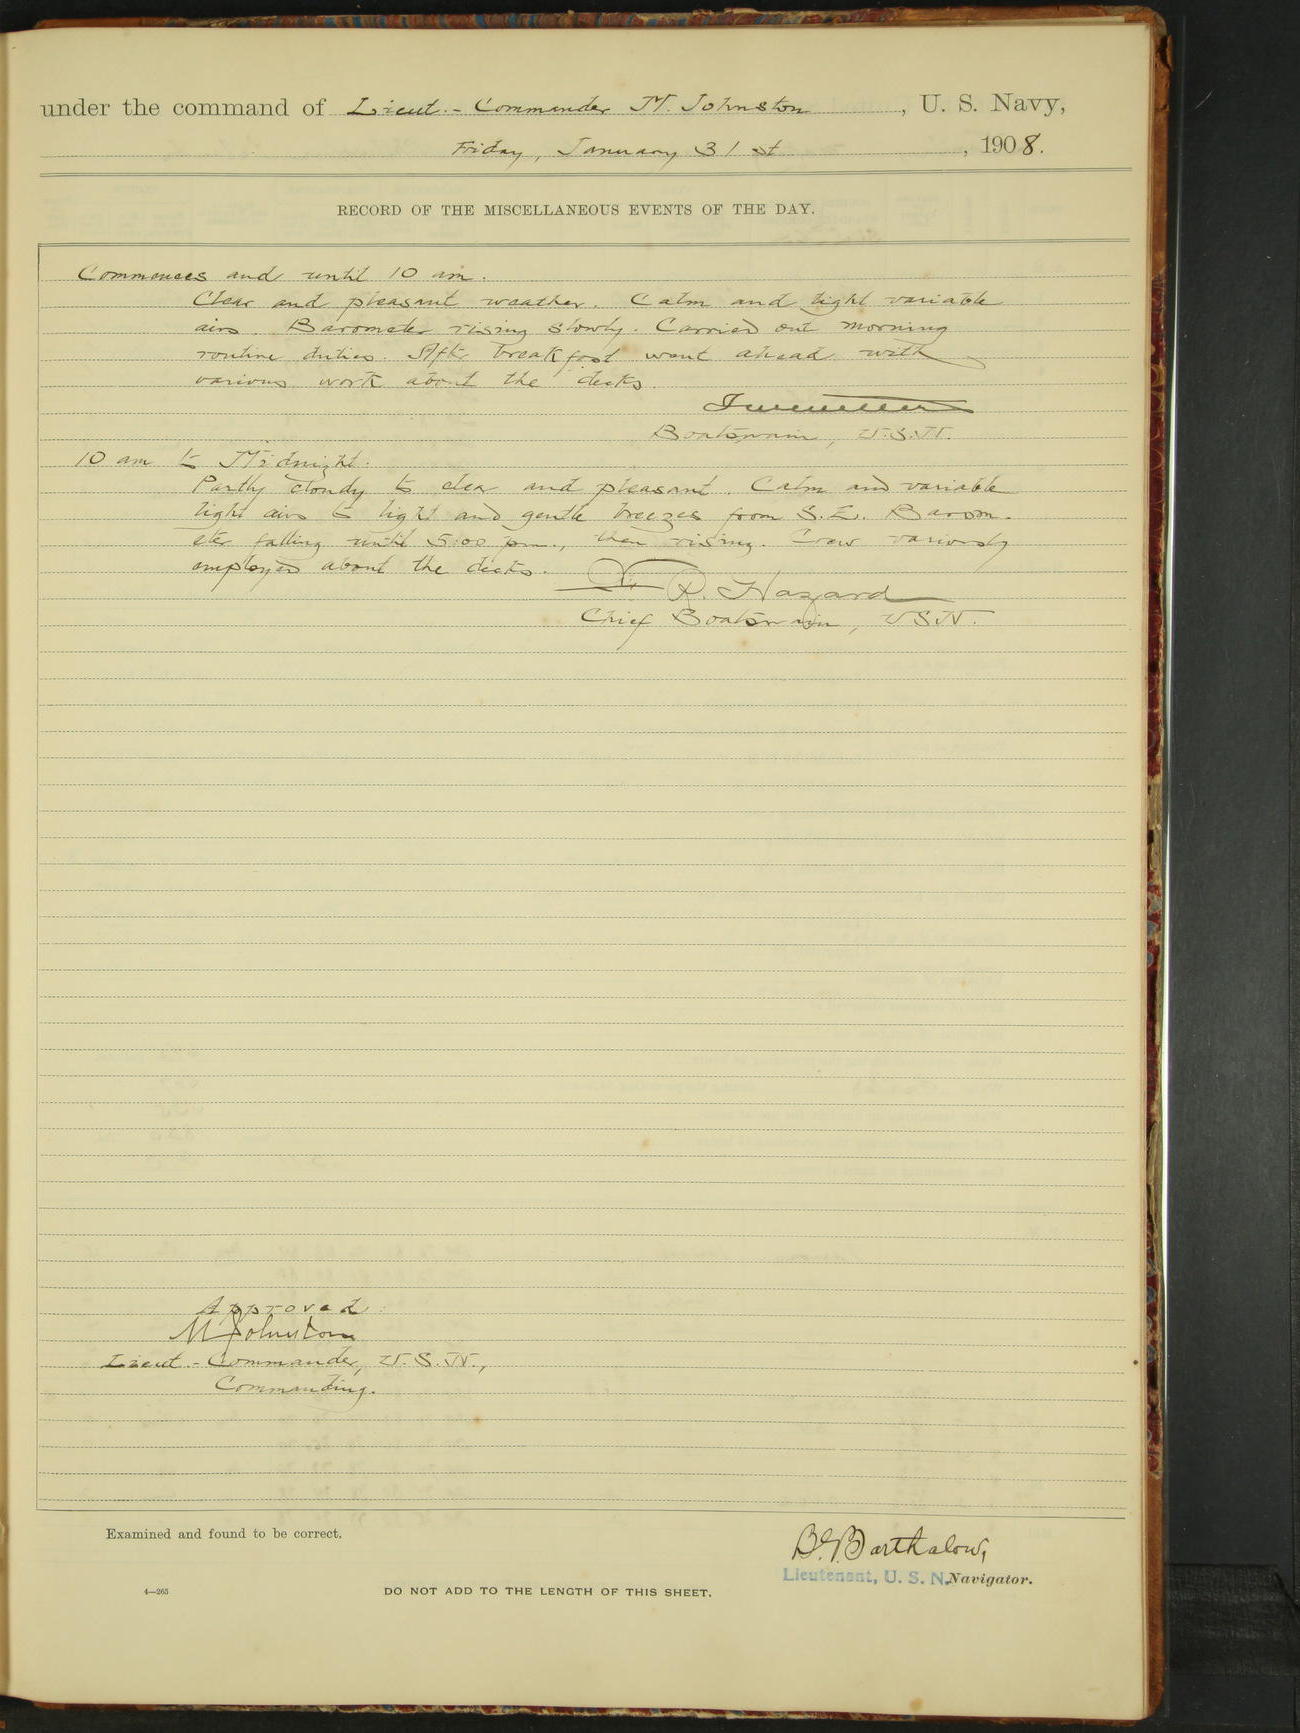 under the command of Lieut.- Commander M. Johnston, U. S. Navy,
Friday, January 31st, 1908.
RECORD OF THE MISCELLANEOUS EVENTS OF THE DAY.
Commences and until 10 am.
Clear and pleasant weather. Calm and light variable
airs. Barometer rising slowly. Carried out morning
routine duties. After breakfast went ahead with
various work about the decks.
Boatswain, U.S.N.
10 am to Midnight.
Partly cloudy to clear and pleasant. Calm and variable
light airs to light and gentle breezes from S.E. Barom-
eter falling until 5:00 pm., then rising. Crew variously
employed about the decks.
R. Hazard
Chief Boatswain, USN.
Approved:
M Johnston
Lieut.- Commander, U.S.N.,
Commanding.
Examined and found to be correct.
B.G. Barthalow,
Lieutenant, U. S. N. Navigator.
4—265
DO NOT ADD TO THE LENGTH OF THIS SHEET.